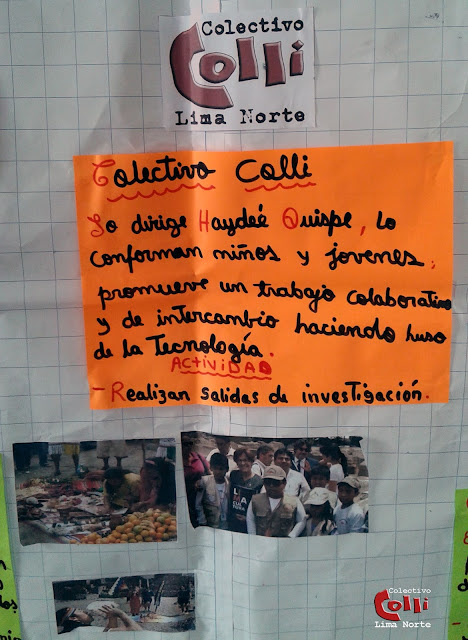 Colectivo
Colli
Lima Norte
Colectivo Colli
Lo dirige Haydeé Quispe, lo
conforman niños y jovenes,
promueve un trabajo colaborativo
y de intercambio haciendo huso
de la Tecnología.
ACTIVIDAD
- Realizan salidas de investigación.
Colectivo
Colli
Lima Norte